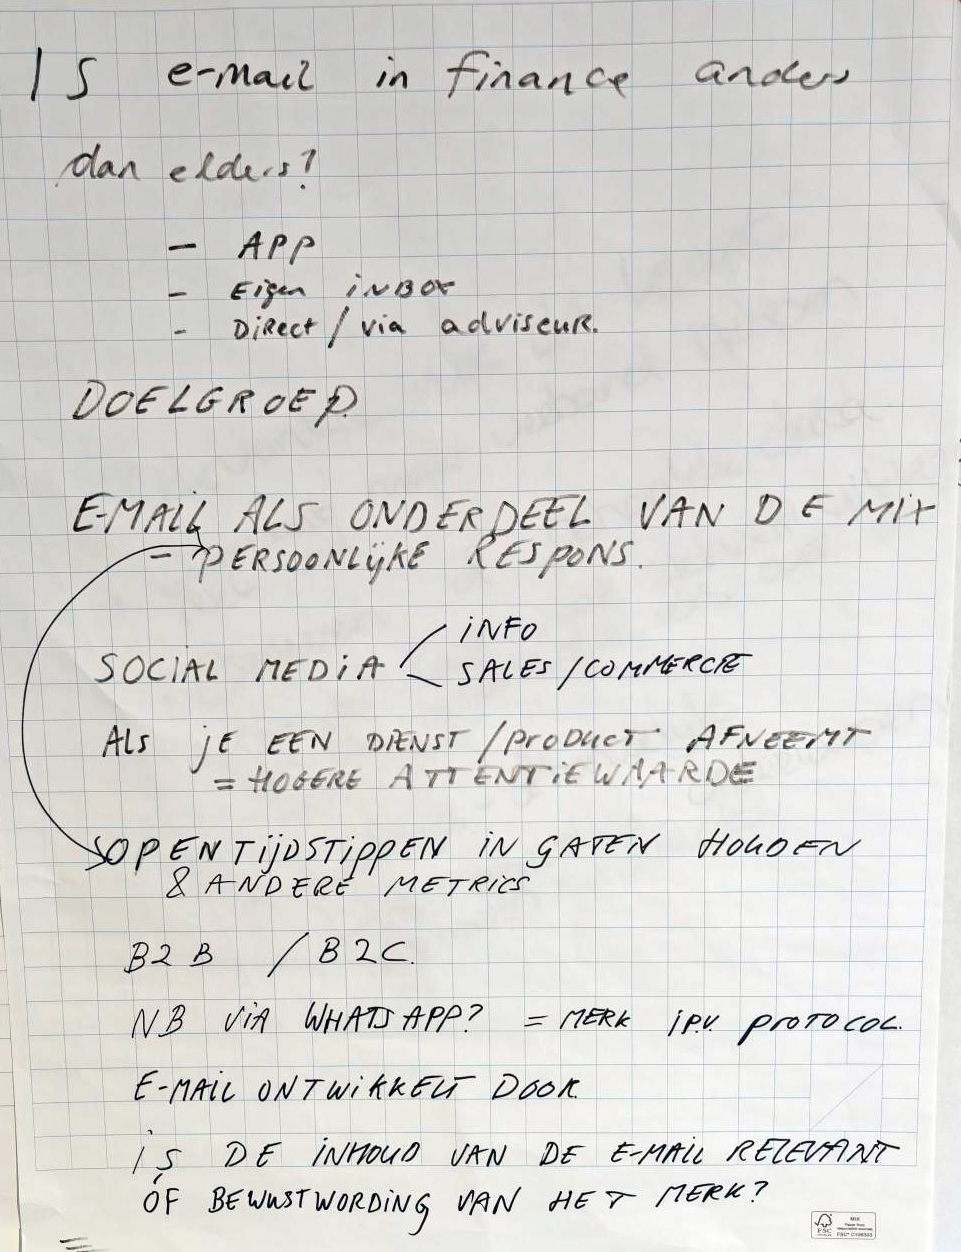 Is e-mail in finance anders
dan elders?
- APP
- Eigen inBox
- Direct / via adviseur.
DOELGROEP.
E-MAIL ALS ONDERDEEL VAN DE MIX
- PERSOONLIJKE RESPONS.
INFO
SOCIAL MEDIA
SALES / COMMERCIE
Als je EEN DIENST / product AFNEEMT
= HOGERE ATTENTIEWAARDE
OPENTIJDSTIPPEN IN GATEN HOUDEN
& ANDERE METRICS
B2B / B2C.
NB VIA WHATSAPP? = MERK i.p.v. PROTOCOL.
E-MAIL ONTWIKKELT DOOR.
IS DE INHOUD VAN DE E-MAIL RELEVANT
ÓF BEWUSTWORDING VAN HET MERK?
FSC
MIX